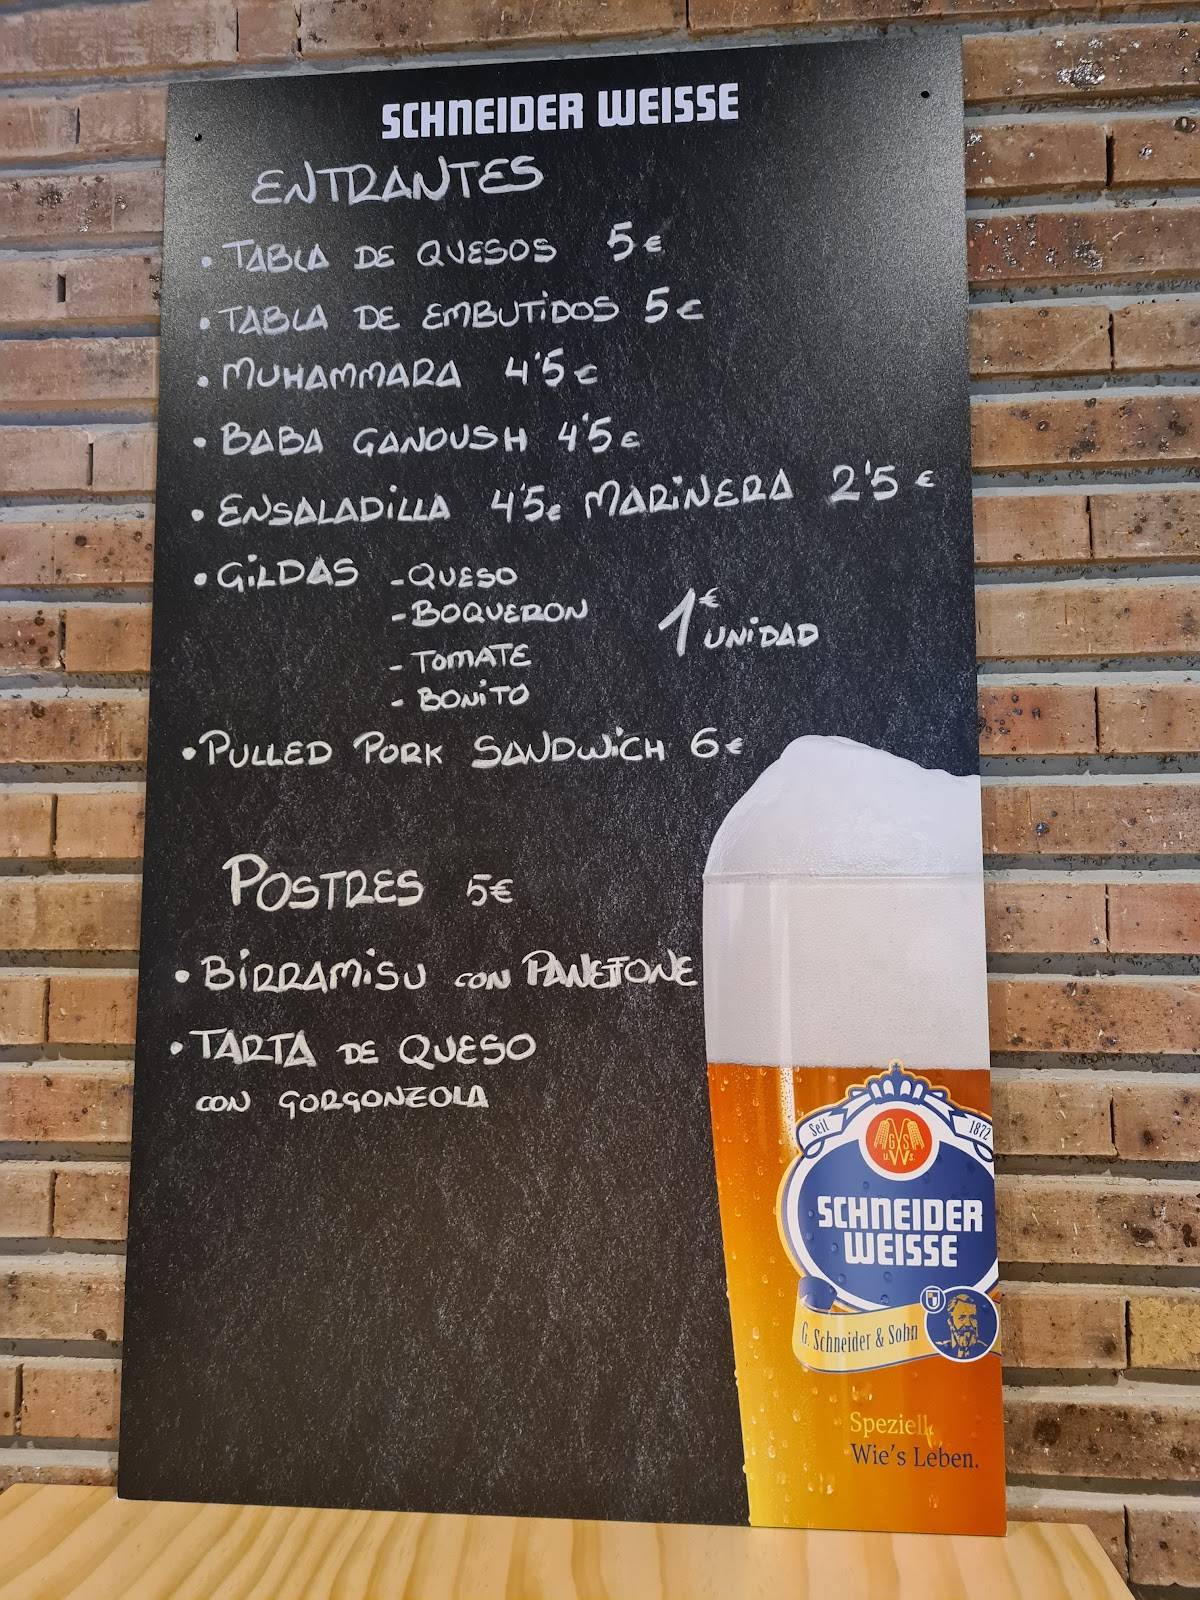 SCHNEIDER WEISSE
ENTRANTES
• TABLA DE QUESOS 5€
• TABLA DE EMBUTIDOS 5€
• MUHAMMARA 4'5€
• BABA GANOUSH 4'5€
• ENSALADILLA 4'5€ MARINERA 2'5€
• GILDAS - QUESO
- BOQUERON
1€ UNIDAD
- TOMATE
- BONITO
• PULLED PORK SANDWICH 6€
POSTRES 5€
• BIRRAMISU CON PANETTONE
• TARTA DE QUESO
CON GORGONZOLA
Seit 1872
G S
u. W s.
SCHNEIDER
WEISSE
G. Schneider & Sohn
Speziell.
Wie's Leben.